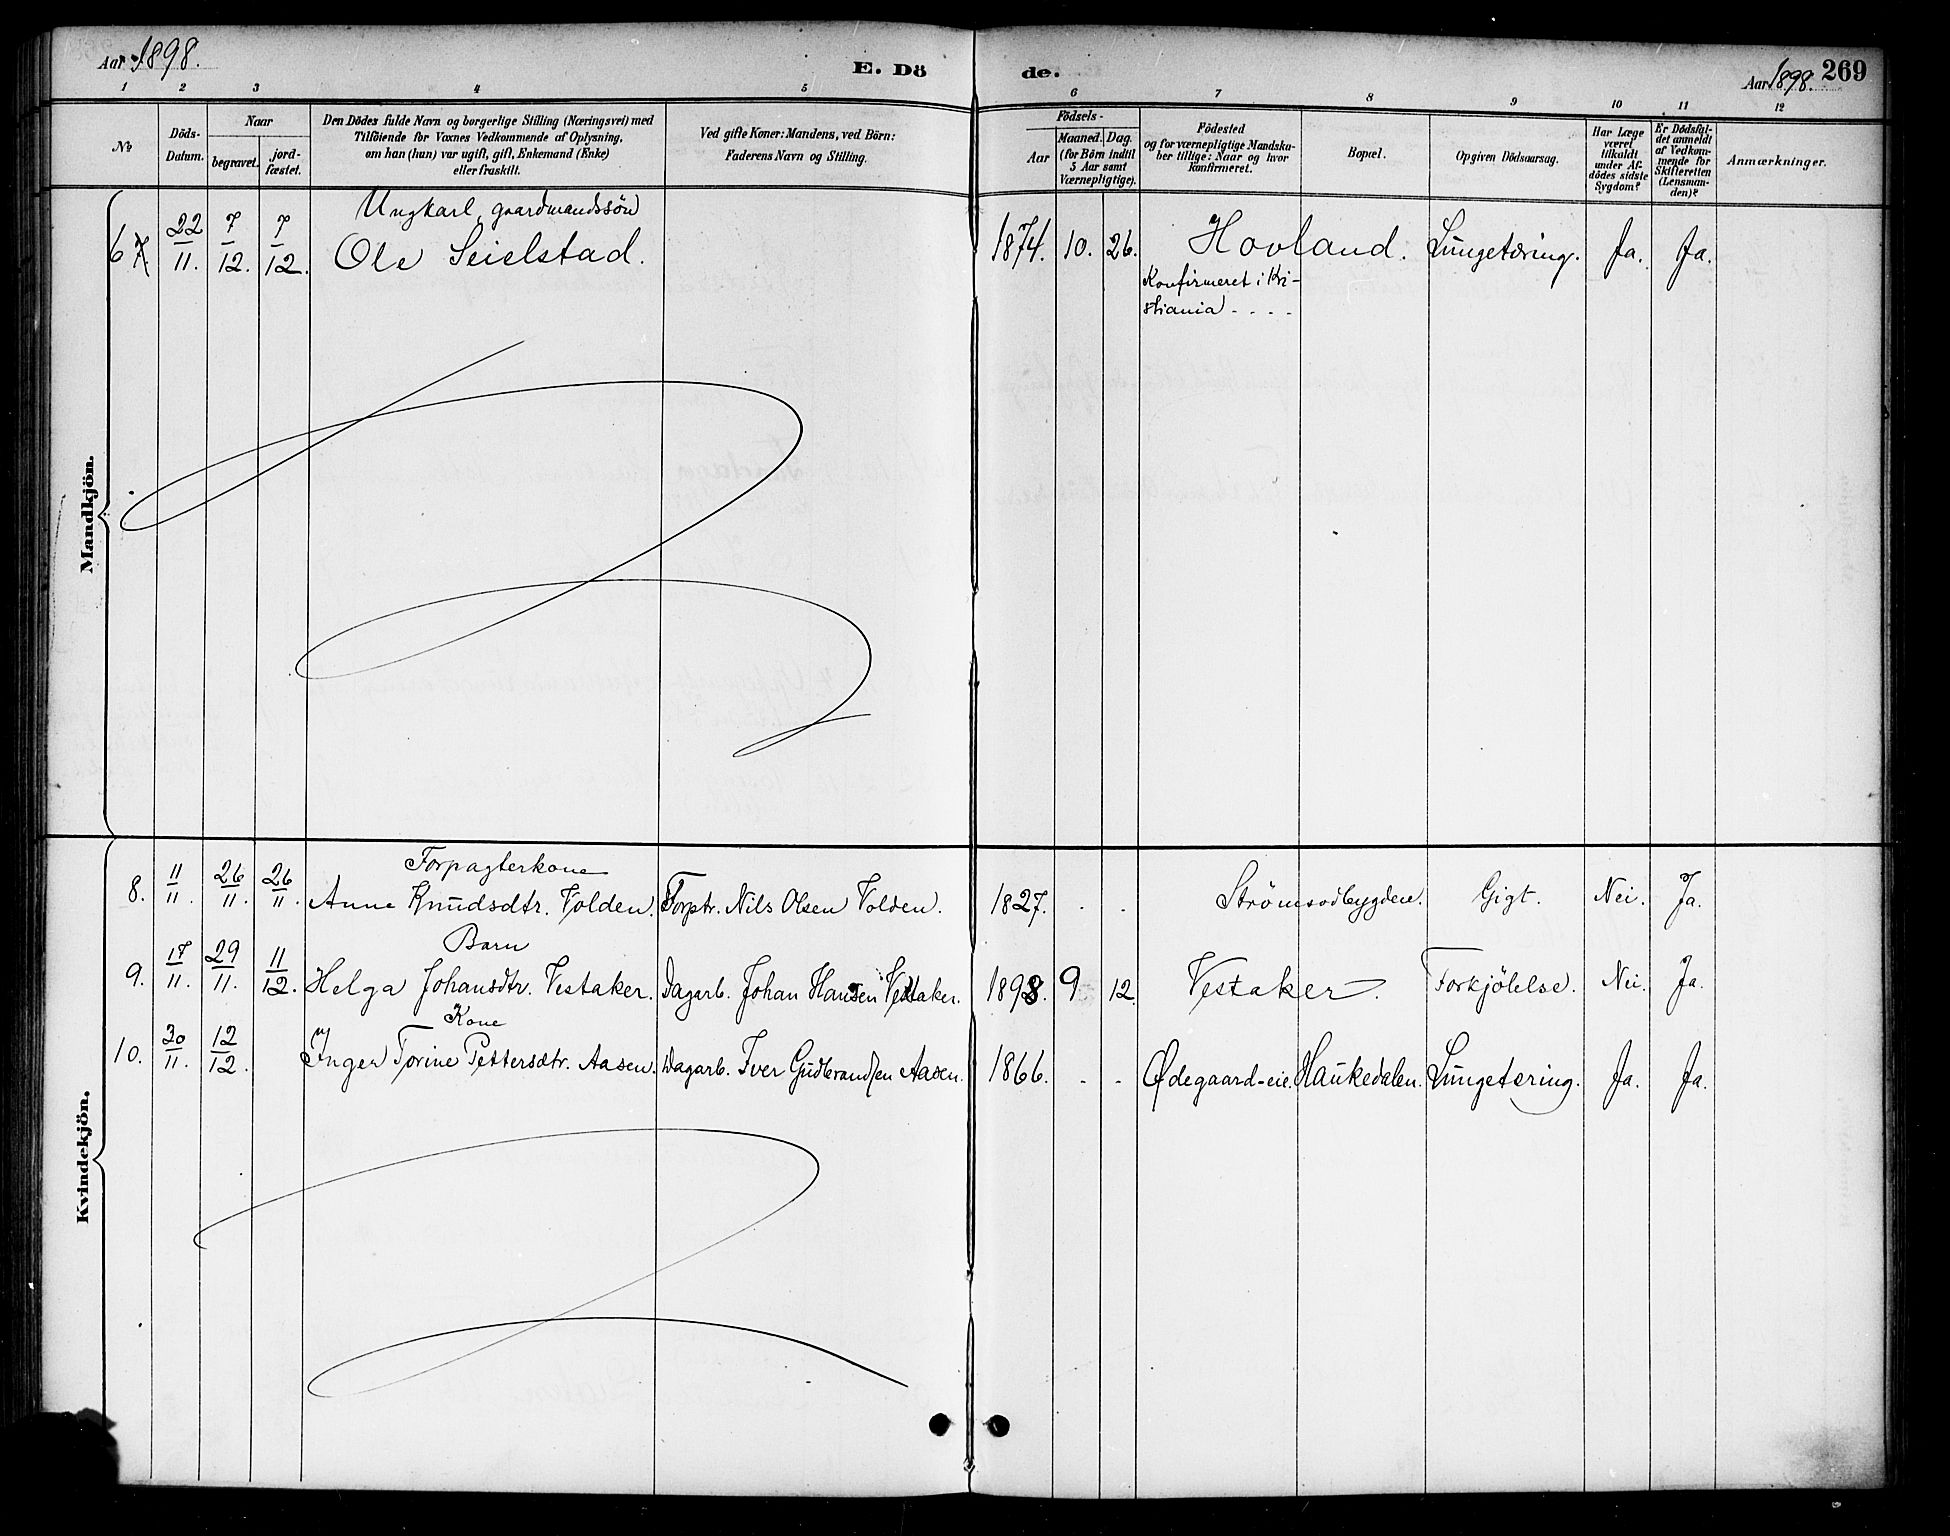 Aar 1898.
E. Döde.
Aar 1898. 269
1 2 3 4 5 6 7 8 9 10 11 12
№
Döds-
Datum.
Naar
begravet.
jord-
fæstet.
Den Dödes fulde Navn og borgerlige Stilling (Næringsvei) med
Tilföiende for Voxnes Vedkommende af Oplysning,
om han (hun) var ugift, gift, Enkemand (Enke)
eller fraskilt.
Ved gifte Koner: Mandens, ved Börn:
Faderens Navn og Stilling.
Födsels-
Aar
Maaned. Dag.
(for Börn indtil
5 Aar samt
Værnepligtige).
Födested
og for værnepligtige Mandska-
ber tillige: Naar og hvor
konfirmeret.
Bopæl.
Opgiven Dödsaarsag.
Har Læge
været
tilkaldt
under Af-
dödes sidste
Sygdom?
Er Dödsfal-
det anmeldt
af Vedkom-
mende for
Skifteretten
(Lensman-
den)?
Anmærkninger.
Mandkjön.
Ungkarl, gaardmandssön
6 7 22/11. 7/12. 7/12. Ole Seielstad. 1874. 10. 26. Hovland. Lungetæring. Ja. Ja.
Konfirmeret i Kri-
stiania - . . -
Kvindekjön.
Forpagterkone
8. 11/11. 26/11. 26/11. Anne Knudsdtr. Volden. Forptr. Nils Olsen Volden. 1827. . . Strömsodbygden. Gigt. Nei. Ja.
Barn
9. 17/11. 29/11. 11/12. Helga Johansdtr. Vestaker. Dagarb. Johan Hansen Vestaker. 1898. 9 12 Vestaker. Forkjölelse. Nei. Ja.
Kone
10. 30/11. 12/12. Inger Torine Pettersdtr. Aasen. Dagarb. Iver Gudbrandsen Aasen. 1866. - - Ødegaard-eie. Haukedalen. Lungetæring. Ja. Ja.